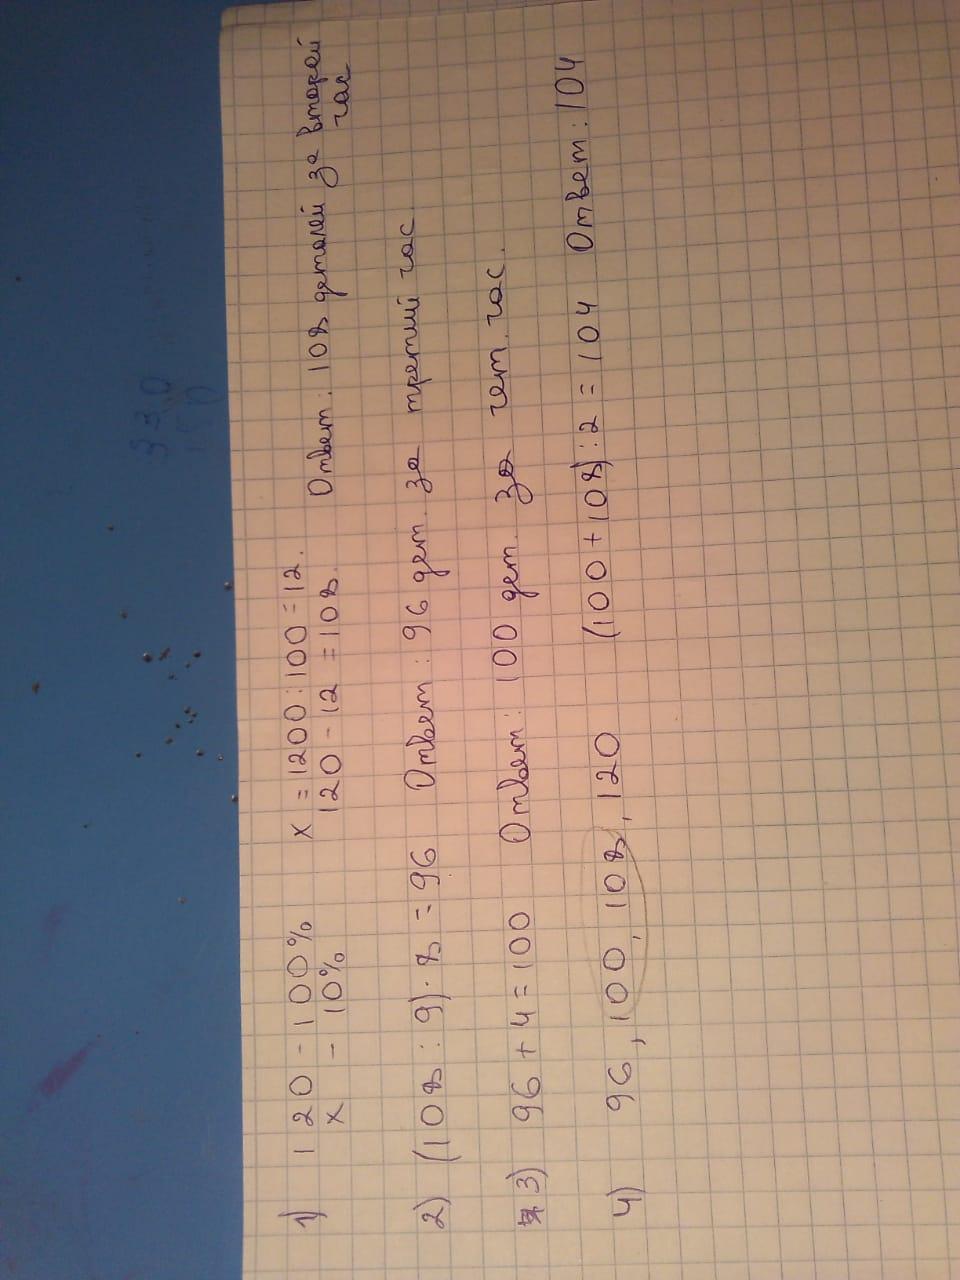 1) 120 - 100% x = 1200 : 100 = 12.
x - 10% 120 - 12 = 108. Ответ: 108 деталей за второй
час
2) (108 : 9) · 8 = 96 Ответ: 96 дет. за третий час.
3) 96 + 4 = 100 Ответ: 100 дет. за чет. час.
4) 96, 100, 108, 120 (100 + 108) : 2 = 104 Ответ: 104